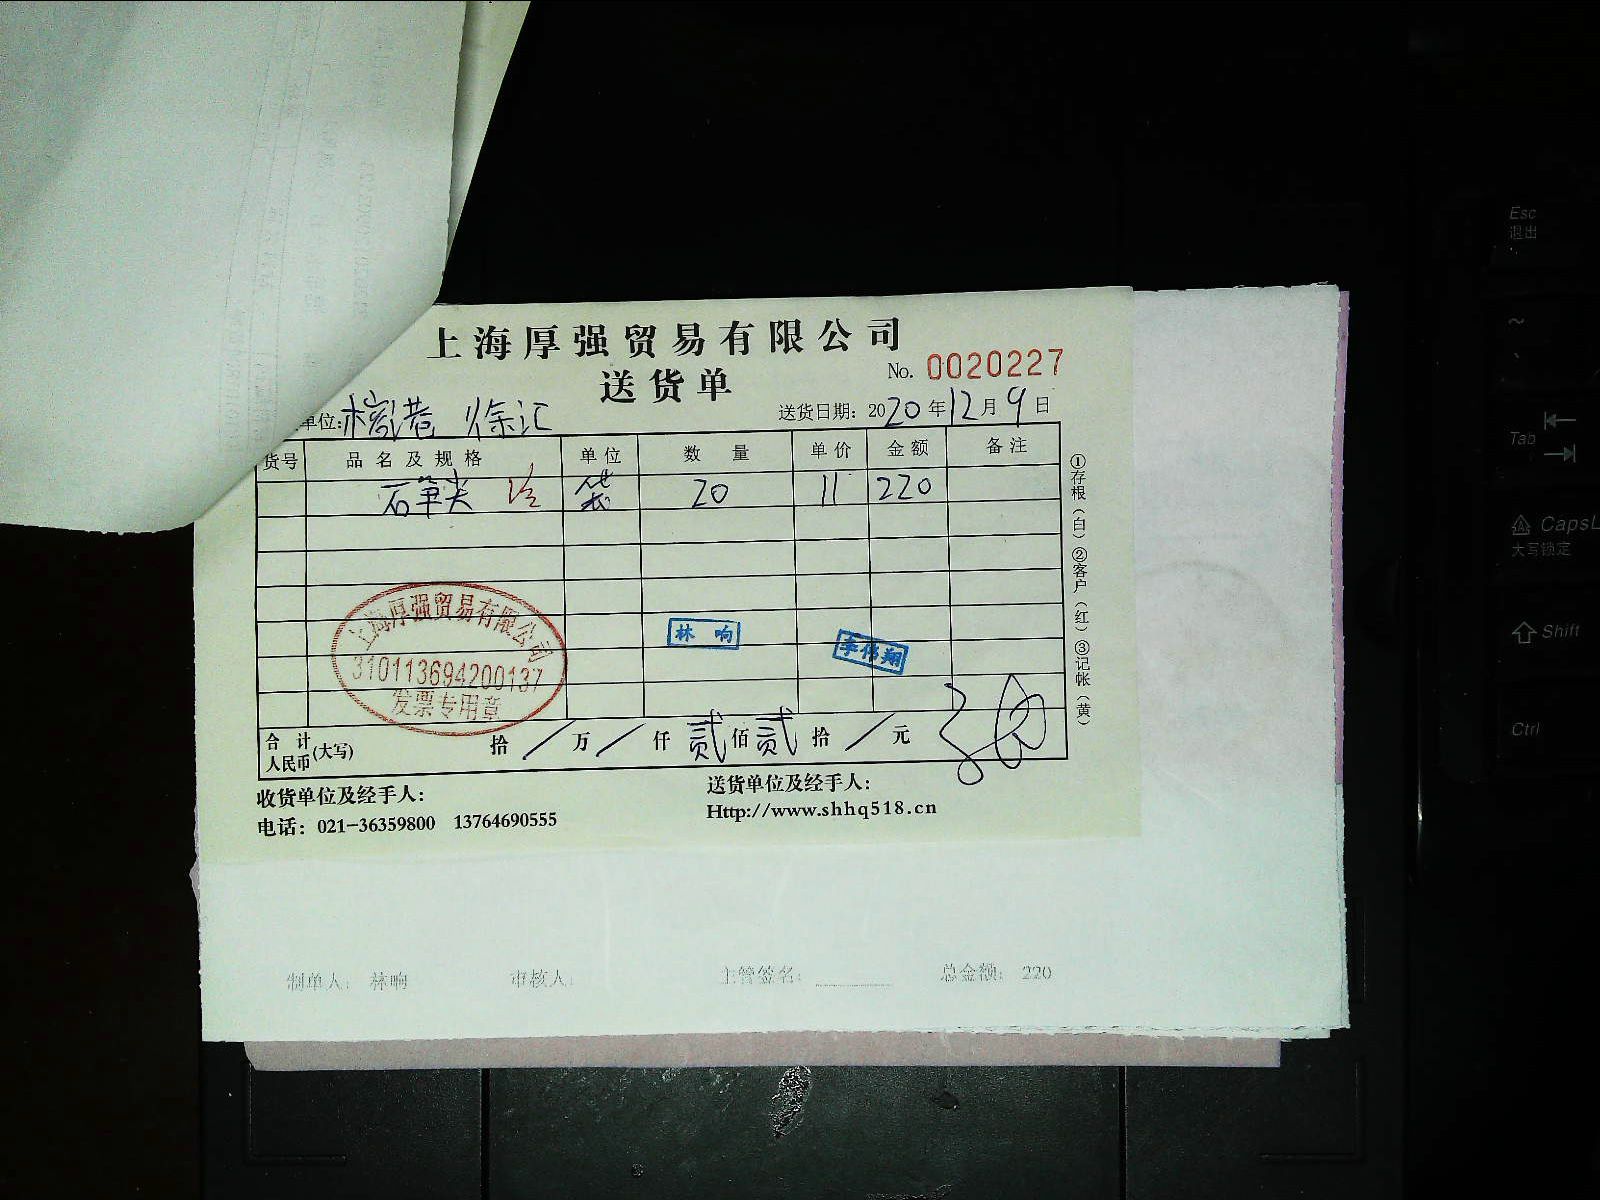 上海厚强贸易有限公司
送货单
No. 0020227
单位: 徐汇
送货日期: 2020年12月9日
货号 品名及规格 单位 数量 单价 金额 备注
石笔尖 袋 20 11 220
①存根（白）②客户（红）③记帐（黄）
上海厚强贸易有限公司
310113694200137
发票专用章
林响
李伟翔
合计人民币(大写) 拾 / 万 / 仟 贰 佰 贰 拾 / 元
收货单位及经手人:
送货单位及经手人:
电话: 021-36359800 13764690555
Http://www.shhq518.cn
制单人: 林响 审核人: 主管签名: 总金额: 220
Esc
退出
~
Tab
CapsL
大写锁定
Shift
Ctrl